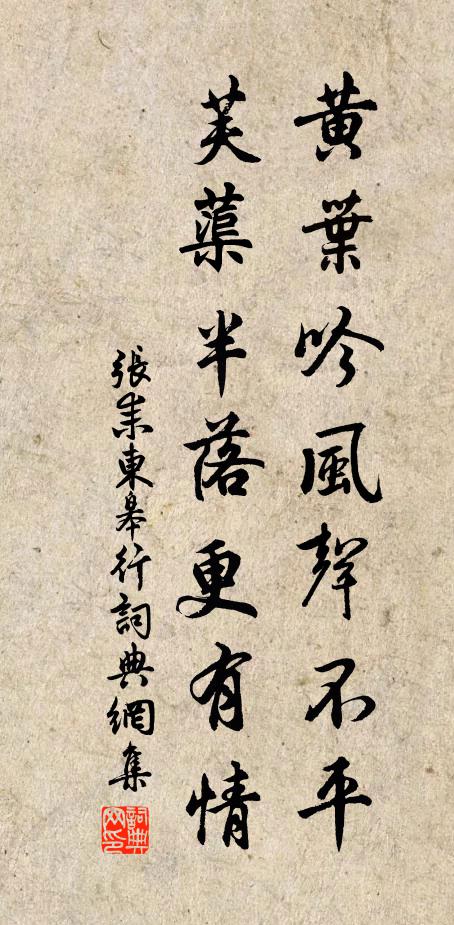 黄葉吟風聲不平
芙蕖半落更有情
張耒東皋行詞典網集
詞典網印